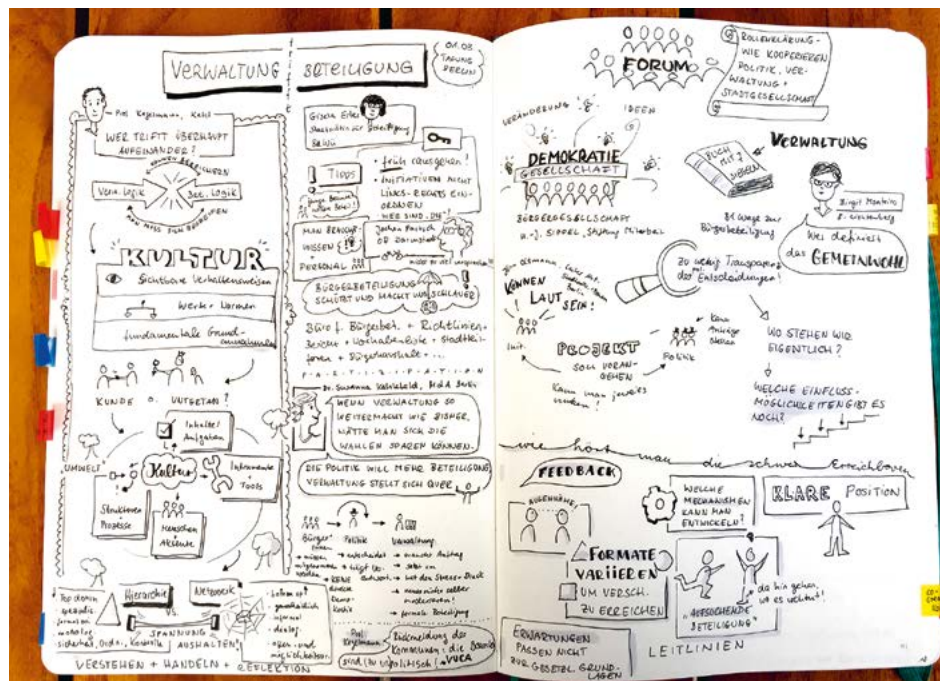 VERWALTUNG
trifft
BETEILIGUNG
01.03.
TAGUNG
BERLIN
Prof. Kegelmann, Kehl
WER TRIFFT ÜBERHAUPT
AUFEINANDER?
KÖNNEN BEREICHERN
Verw. Logik
Bet. Logik
MAN MUSS SICH BEGREIFEN
KULTUR
Sichtbare Verhaltensweisen
Werte + Normen
fundamentale Grund-
annahmen
KUNDE O. UNTERTAN?
Inhalte/
Aufgaben
UMWELT
Kultur
Instrumente
+ Tools
Strukturen
Prozesse
Menschen
+ Akteure
Top down
formal
monolog.
sicherheit, Ordn., Kontrolle
Hierarchie
VS.
Netzwerk
SPANNUNG
AUSHALTEN
bottom up
ganzheitlich
informal
dialog.
VERSTEHEN + HANDELN + REFLEKTION
Gisela Erler
Staatsrätin für Beteiligung
BaWü
! Tipps
• früh rausgehen!
• INITIATIVEN NICHT
LINKS-RECHTS EIN-
ORDNEN
WER SIND "DIE"!
MAN BRAUCHT
WISSEN
+
PERSONAL
Jochen Partsch
OB Darmstadt
BÜRGERBETEILIGUNG
SCHÜTZT UND MACHT UNS SCHLAUER
Büro f. Bürgerbet. + Richtlinien +
Beirat + Vorhabenliste + Stadtteil-
foren + Bürgerhaushalt + ...
P-A-R-T-I-Z-I-P-A-T-I-O-N
WENN VERWALTUNG SO
WEITERMACHT WIE BISHER,
HÄTTE MAN SICH DIE
WAHLEN SPAREN KÖNNEN.
DIE POLITIK WILL MEHR BETEILIGUNG
VERWALTUNG STELLT SICH QUER
Bürger*
innen
Politik
Verwaltung
→ entscheidet
→ KEINE
direkte
Demo-
kratie
→ setzt um
→ hat den Stress + Druck
→ formale Beteiligung
Prof.
Kegelmann:
Rückmeldung des
sind (zu unpolitisch)
→ VUCA
FORUM
ROLLENKLÄRUNG -
WIE KOOPERIEREN
POLITIK, VER-
WALTUNG +
STADTGESELLSCHAFT
VERÄNDERUNG
IDEEN
DEMOKRATIE
GESELLSCHAFT
BÜRGERGESELLSCHAFT
H.-J. SIPPEL, Stiftung Mitarbeit
BUCH
MIT 7
SIEGELN
VERWALTUNG
Birgit Monteiro
Wer definiert
das GEMEINWOHL
84 Wege zur
Bürgerbeteiligung
Zu wenig Transparenz
der pol. Entscheidungen!
KÖNNEN
LAUT
SEIN!
Init.
PROJEKT
SOLL VORAN-
GEHEN
Politik
Kann
Anträge
stellen
Kann man jeweils
nutzen!
WO STEHEN WIR
EIGENTLICH?
WELCHE EINFLUSS-
MÖGLICHKEITEN GIBT ES
NOCH?
wie hört man die schwer Erreichbaren
FEEDBACK
AUGENHÖHE
WELCHE
MECHANISMEN
KANN MAN
ENTWICKELN?
KLARE POSITION
FORMATE
VARIIEREN
UM VERSCH.
ZU ERREICHEN
"AUFSUCHENDE
BETEILIGUNG"
da hin gehen,
wo es wehtut!
ERWARTUNGEN
PASSEN NICHT
ZUR GESETZL. GRUND-
LAGEN
LEITLINIEN